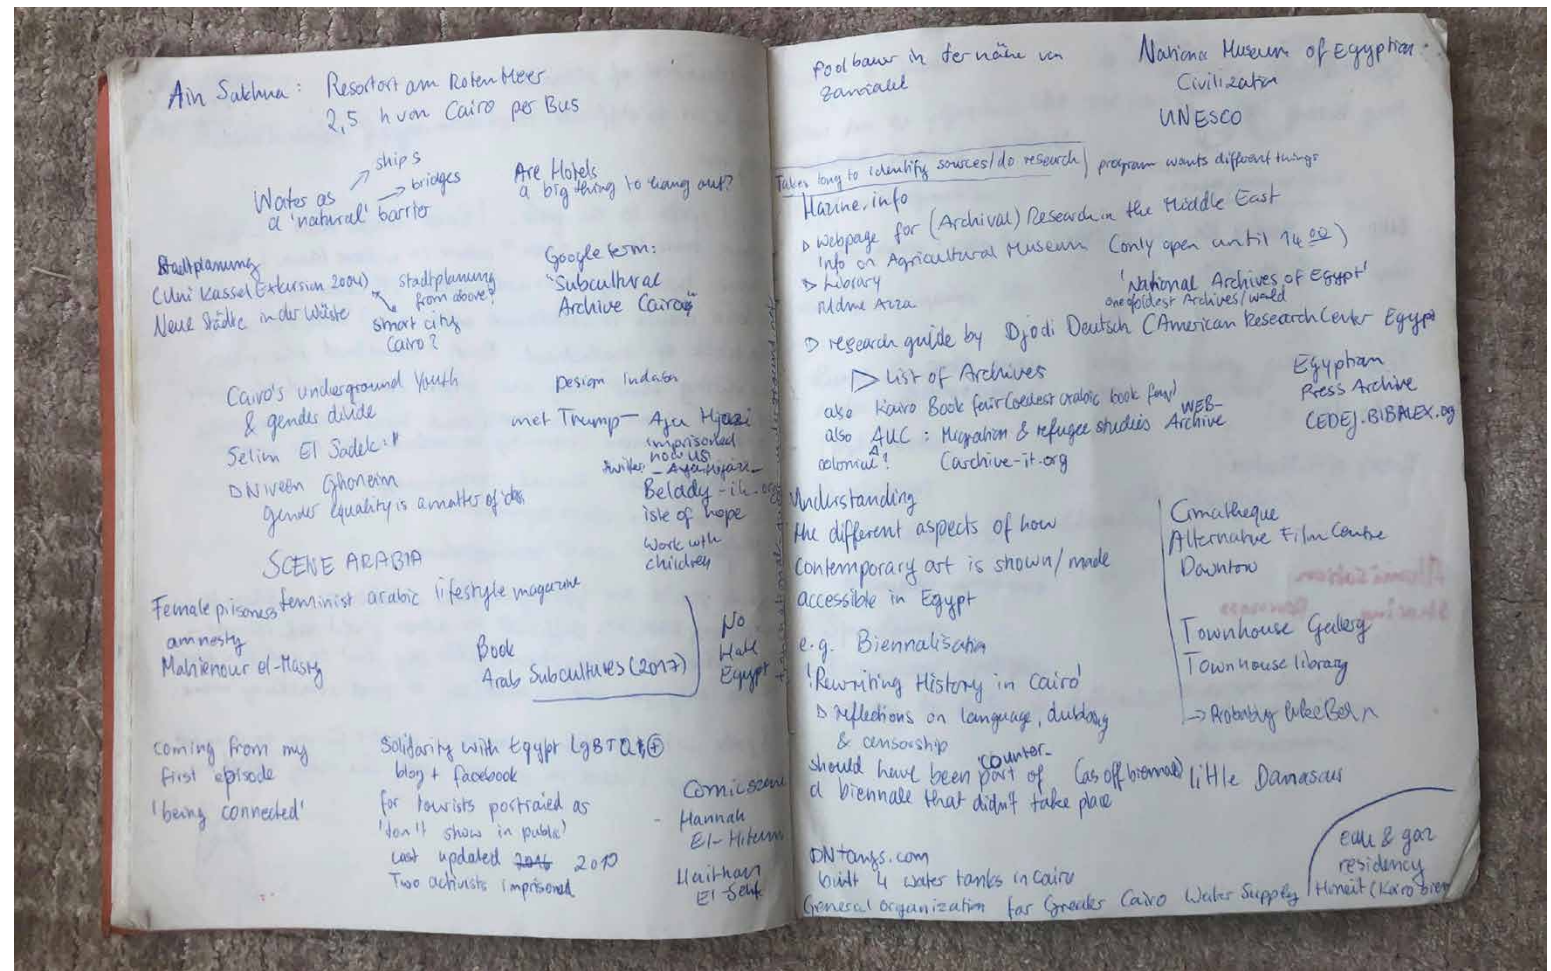 Ain Sukhna: Resortort am Roten Meer
2,5 h von Cairo per Bus
ships
bridges
Water as
a 'natural' barrier
Are Hotels
a big thing to hang out?
Stadtplanung
(Uni Kassel Exkursion 2004)
Neue Städte in der Wüste
stadtplanung
from above?
smart city
Cairo?
Google term:
"Subcultural
Archive Cairo"
Cairo's underground Youth
& gender divide
Selim El Sadek
Niveen Ghoneim
gender equality is a matter of
Design Indaba
met Trump — Aya Hijazi
imprisoned
now US
Belady-ih.org
isle of hope
work with
children
SCENE ARABIA
feminist arabic lifestyle magazine
Female prisoners
amnesty
Mahienour el-Masry
Book
Arab Subcultures (2017)
No
Hate
Egypt
coming from my
first episode
'being connected'
Solidarity with Egypt LGBTQ+
blog + facebook
for tourists portraied as
'don't show in public'
Last updated
Two activists imprisoned
Comicscene
- Hannah
Haitham
in der nähe von
Zamalek
National Museum of Egyptian
Civilization
UNESCO
Takes long to identify sources/do research
program wants different things
Hazine.info
Webpage for (Archival) Research in the Middle East
Info on Agricultural Museum (only open until 14 00)
Library
Mdme Azza
'National Archives of Egypt'
one of oldest Archives/world
research guide by Djodi Deutsch (American Research Center Egypt
List of Archives
also Kairo Book fair (oldest arabic book fair)
also AUC: Migration & refugee studies WEB-Archive
colonial? (archive-it.org
Egyptian
Press Archive
CEDEJ.BIBALEX.org
Understanding
the different aspects of how
contemporary art is shown/made
accessible in Egypt
e.g. Biennalisation
'Rewriting History in Cairo'
reflections on language, dubbing
& censorship
should have been part of counter- (as off biennale)
a biennale that didn't take place
Cimatheque
Alternative Film Centre
Downtow
Townhouse Gallery
Townhouse library
→ Probably like Bern
little Damascus
DNtangs.com
built 4 water tanks in Cairo
General Organization for Greater Cairo Water Supply
eau & gaz
residency